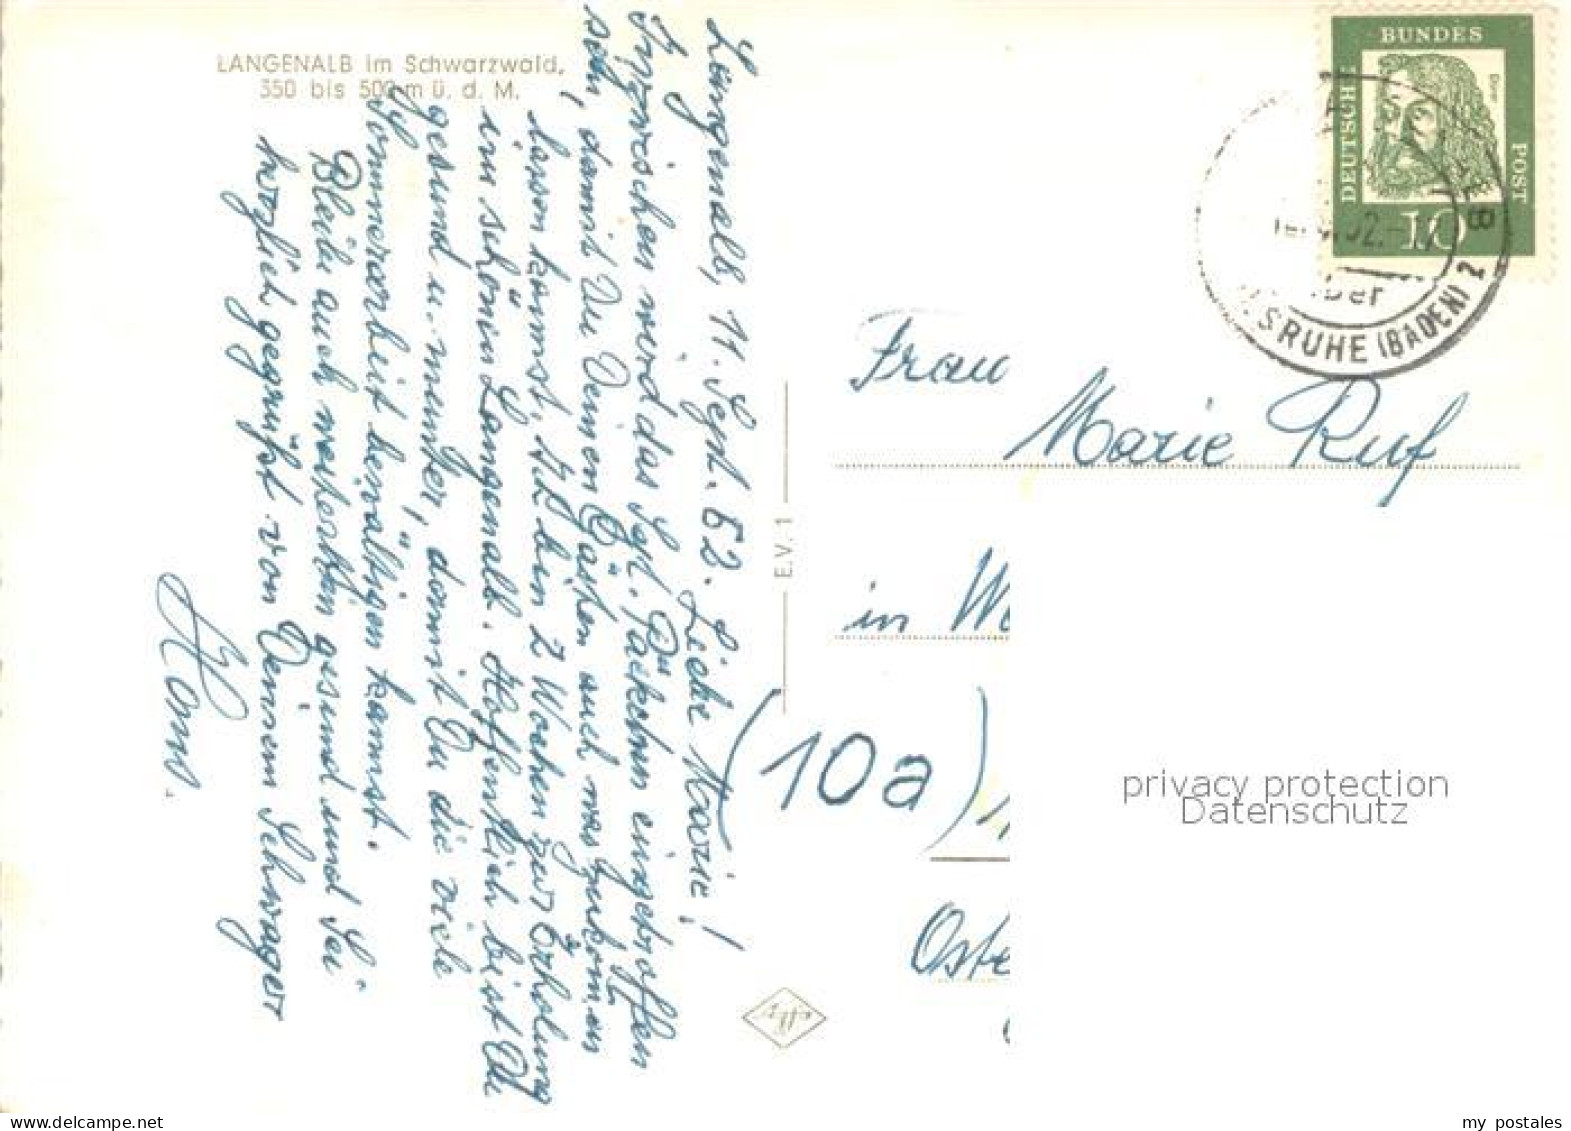 LANGENALB im Schwarzwald,
350 bis 500 m ü. d. M.
Langenalb, 11. Sept. 62. Liebe Marie!
Inzwischen wird das Päckchen eingetroffen
sein, damit Du Deinen Gästen auch was zukommen
lassen kannst. Ich bin 2 Wochen zur Erholung
im schönen Langenalb. Hoffentlich bist Du
gesund u. munter, damit Du die viele
Sommerarbeit bewältigen kannst.
Bleibe auch weiterhin gesund und sei
herzlich gegrüßt von Deinem Schwager
E.V. 1
BUNDES
DEUTSCHE
POST
Dürer
10
RUHE (BADEN) 2
Frau
Marie Ruf
in
(10a)
privacy protection
Datenschutz
my postales